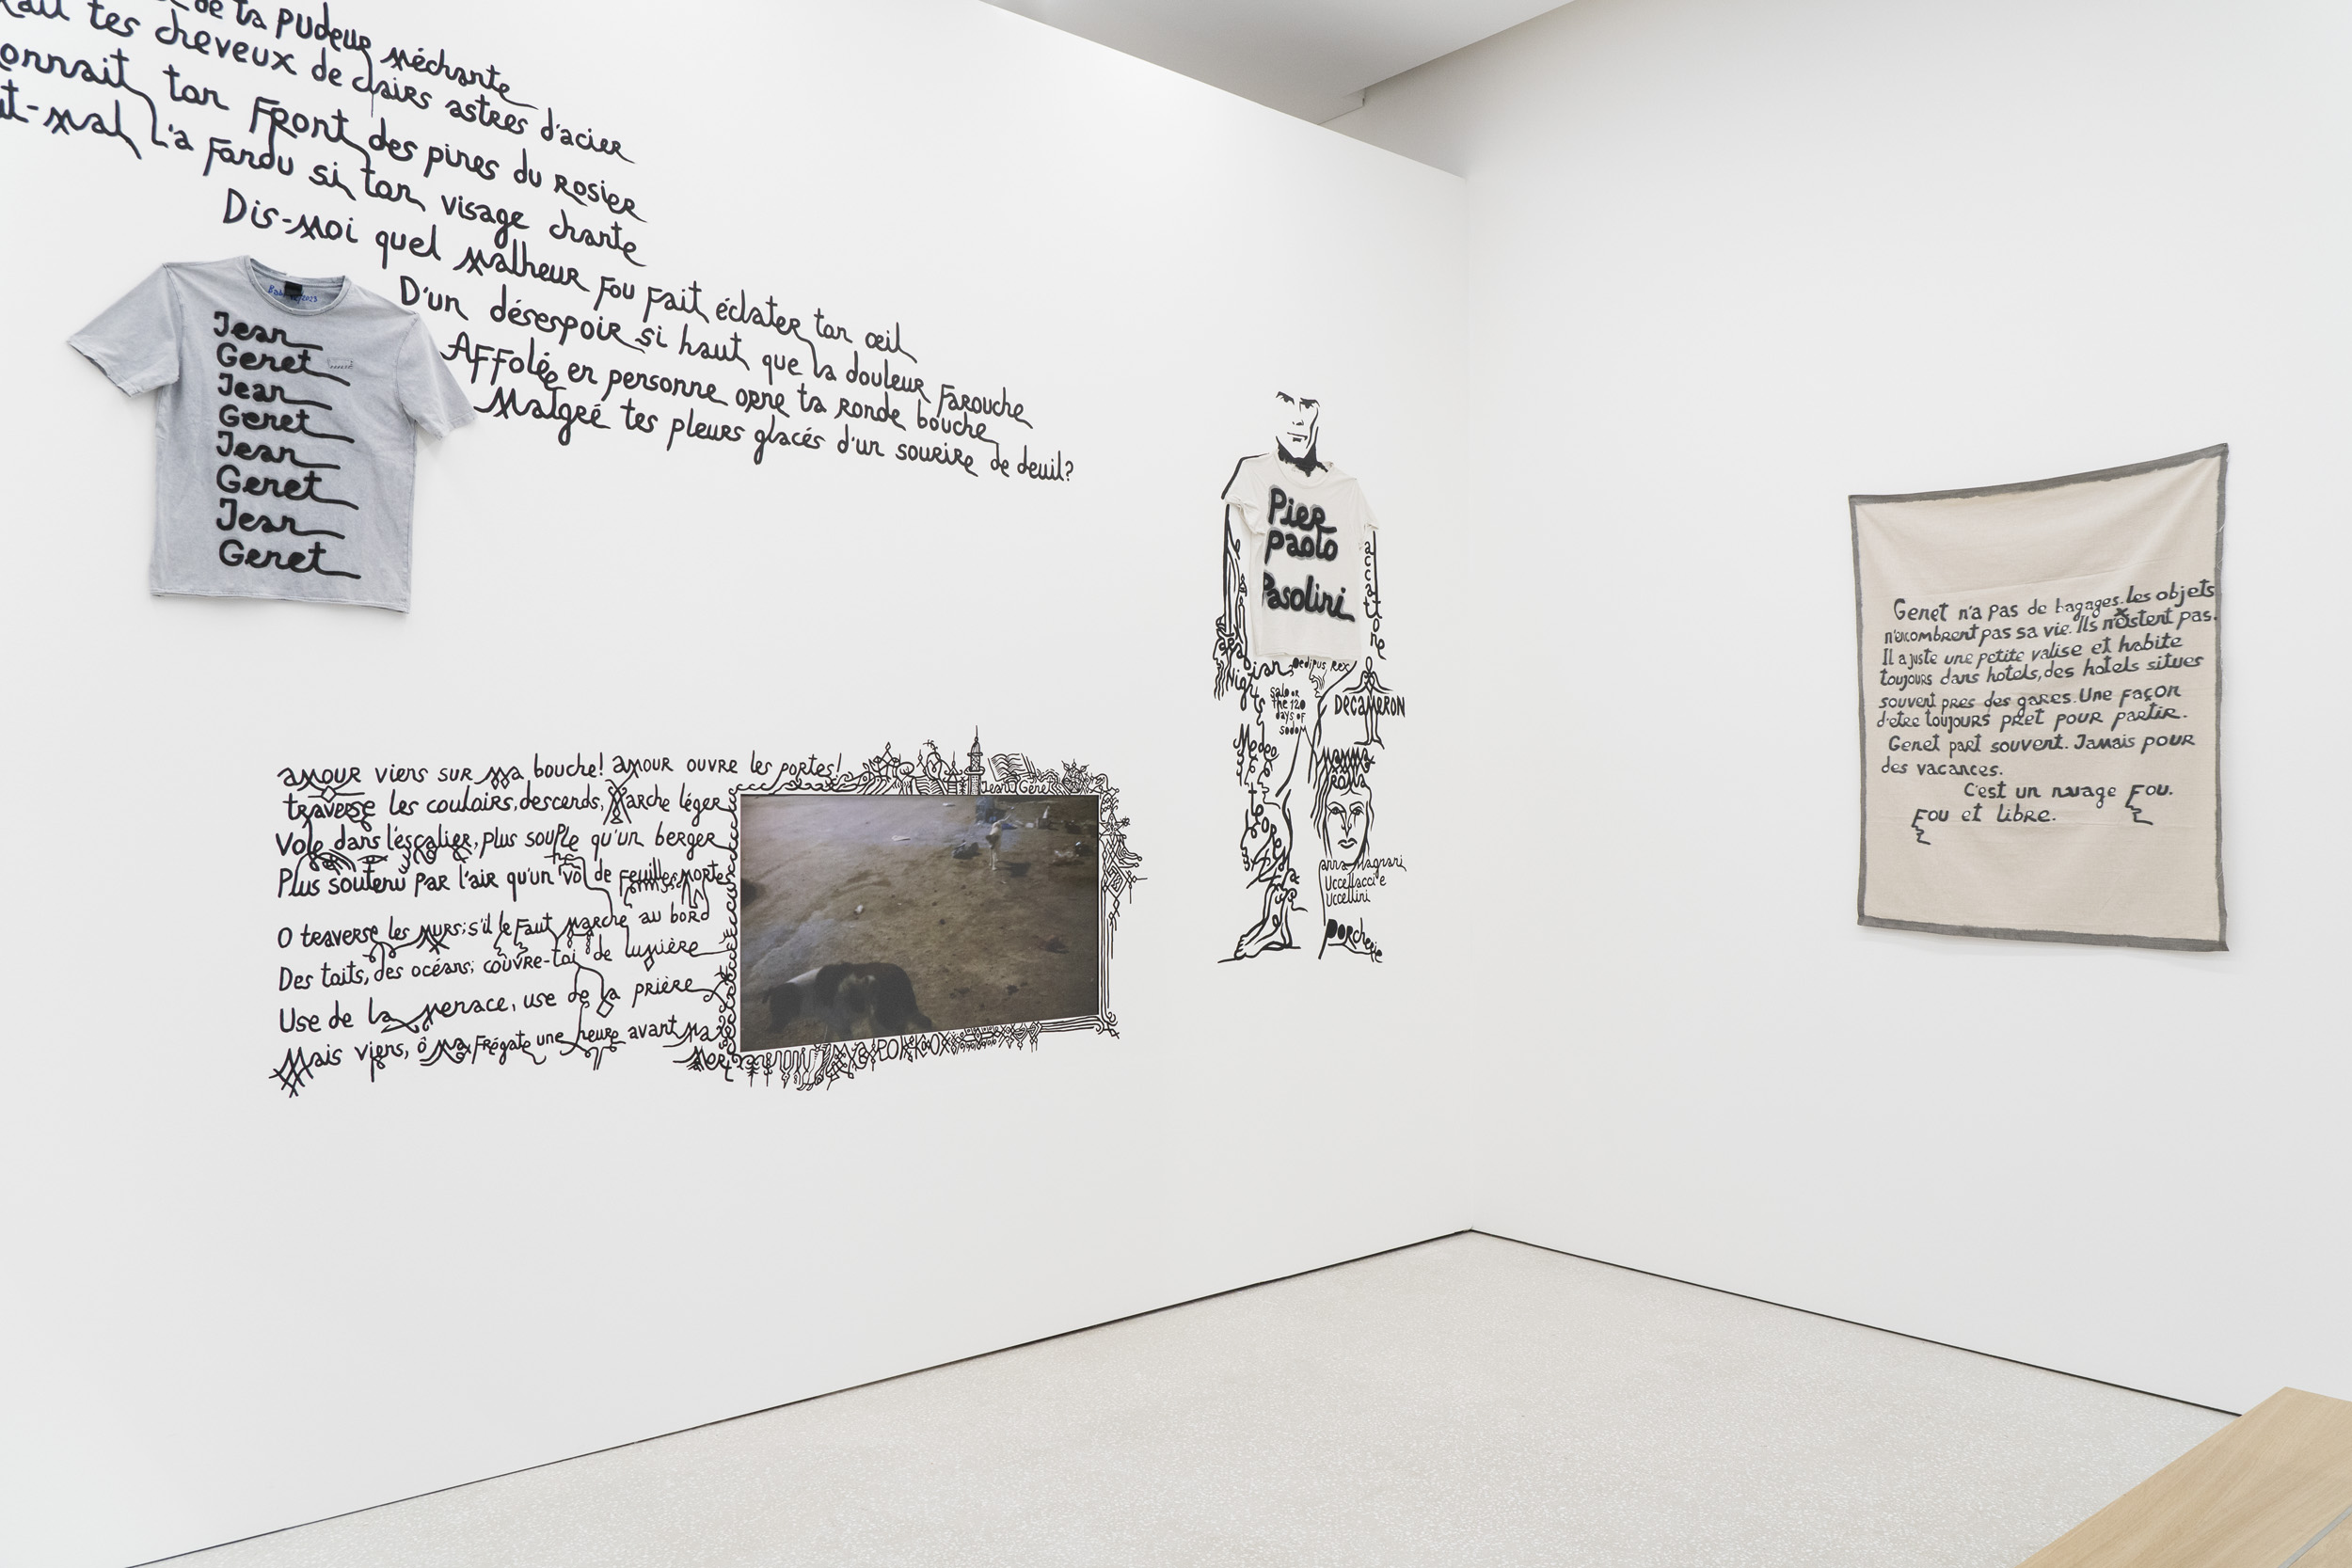 de ta pudeur méchante
tes cheveux de clairs astres d'acier
ton Front des pines du rosier
-mal l'a fardu si ton visage chante
Dis-moi quel malheur fou fait éclater ton œil
D'un désespoir si haut que la douleur farouche
Affolée en personne orne ta ronde bouche
Malgré tes pleurs glacés d'un sourire de deuil?
Jean
Genet
Jean
Genet
Jean
Genet
Jean
Genet
amour viens sur ma bouche! amour ouvre les portes!
traverse les couloirs, descends, marche léger
Vole dans l'escalier, plus souple qu'un berger
Plus soutenu par l'air qu'un vol de feuilles mortes
O traverse les murs; s'il le faut marche au bord
Des toits, des océans; couvre-toi de lumière
Use de la menace, use de la prière
Mais viens, ô ma Frégate une heure avant ma
Mort
Jean Genet
Pier
Paolo
Pasolini
accattone
Oedipus Rex
Salo or
the 120
days of
sodom
DECAMERON
Medee
MAMMA
ROMA
anna Magnani
Uccellacci e
Uccellini
Porcherie
Genet n'a pas de bagages. les objets
n'encombrent pas sa vie. Ils n'existent pas.
Il a juste une petite valise et habite
toujours dans hotels, des hotels situes
souvent pres des gares. Une façon
d'etre toujours prêt pour partir.
Genet part souvent. Jamais pour
des vacances.
C'est un nuage Fou.
Fou et libre.